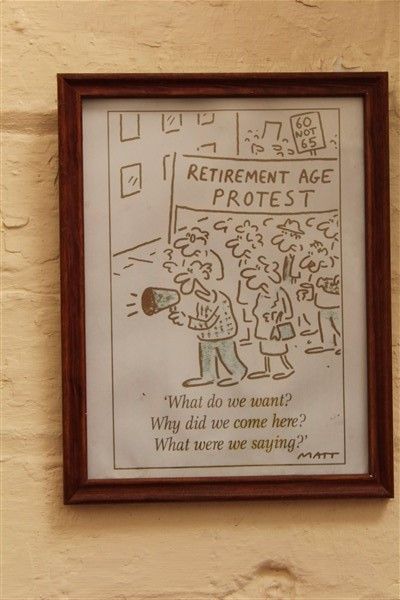 60
NOT
65
RETIREMENT AGE
PROTEST
'What do we want?
Why did we come here?
What were we saying?'
MATT